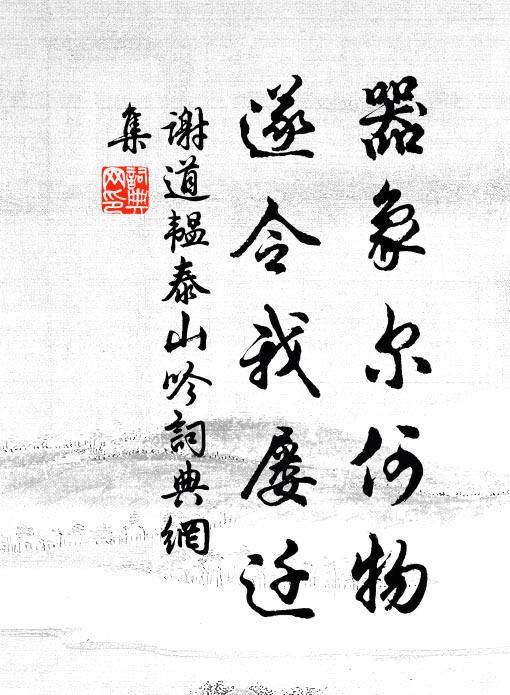 器象尔何物
遂令我屡迁
谢道韫泰山吟詞典網
集
詞典網印